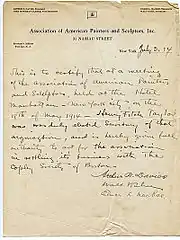 Association of American Painters and Sculptors, Inc.
NASSAU STREET
New York July 3. 14
This is to certify that at a meeting
of the association of American Painters
and Sculptors, held at the Hotel
Manhattan - New York city - on the
18th of May 1914 - Henry Fitch Taylor
was duly elected Secretary of that
organization and is hereby given full
authority to act for the association
in settling its business with the
Copley Society of Boston.
Arthur B. Davies
Walt Kuhn
Elmer L. MacRae